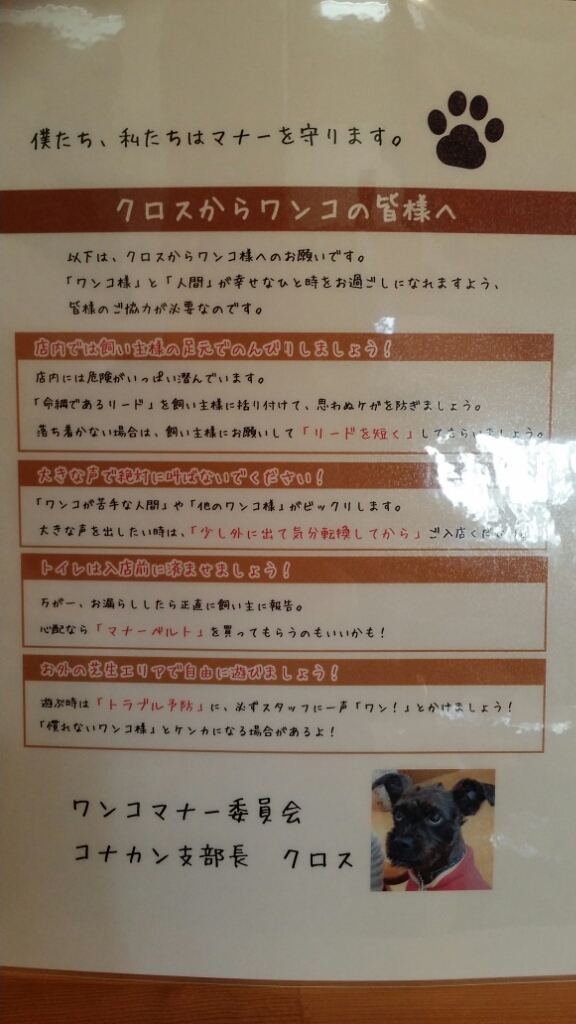 僕たち、私たちはマナーを守ります。
クロスからワンコの皆様へ
以下は、クロスからワンコ様へのお願いです。
「ワンコ様」と「人間」が幸せなひと時をお過ごしになれますよう、
皆様のご協力が必要なのです。
店内では飼い主様の足元でのんびりしましょう!
店内には危険がいっぱい潜んでいます。
「命綱であるリード」を飼い主様に括り付けて、思わぬケガを防ぎましょう。
落ち着かない場合は、飼い主様にお願いして「リードを短く」してもらいましょう。
大きな声で絶対に叫ばないでください!
「ワンコが苦手な人間」や「他のワンコ様」がビックリします。
大きな声を出したい時は、「少し外に出て気分転換してから」ご入店ください。
トイレは入店前に済ませましょう!
万が一、お漏らししたら正直に飼い主に報告。
心配なら「マナーベルト」を買ってもらうのもいいかも!
お外の芝生エリアで自由に遊びましょう!
遊ぶ時は「トラブル予防」に、必ずスタッフに一声「ワン!」とかけましょう!
「慣れないワンコ様」とケンカになる場合があるよ!
ワンコマナー委員会
コナカン支部長 クロス